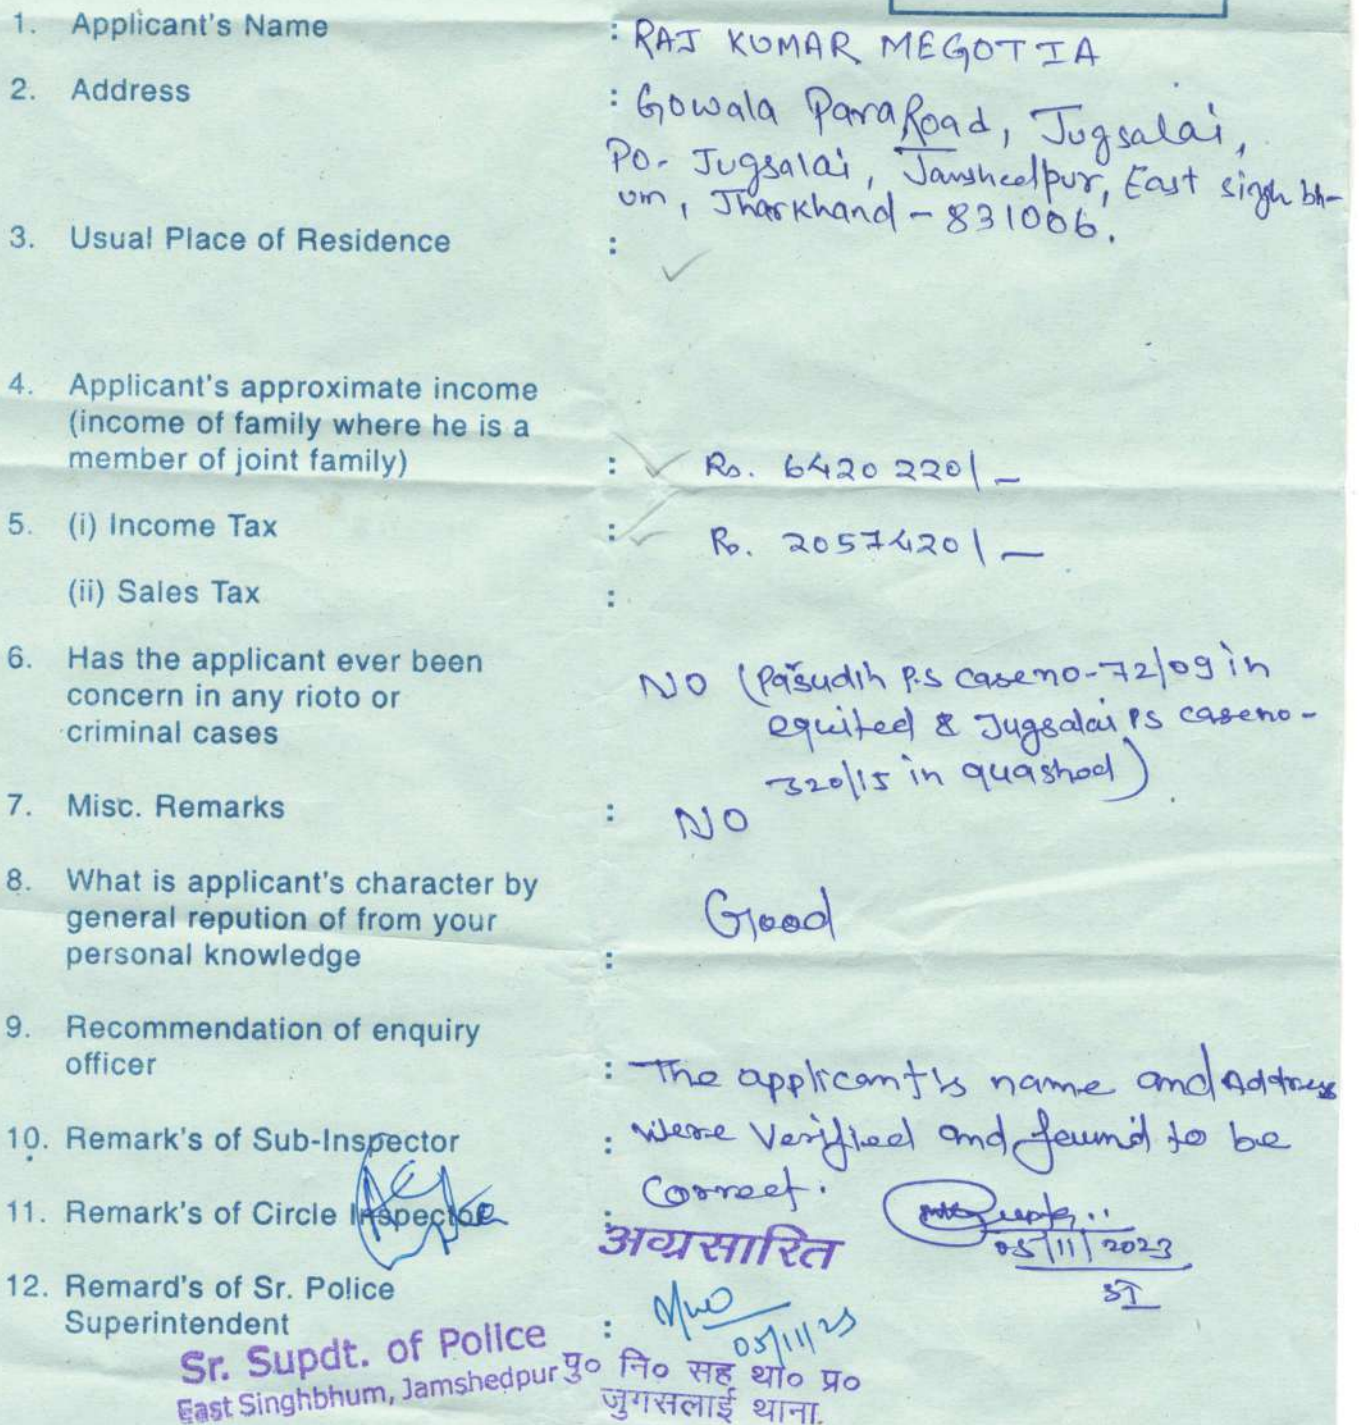 1. Applicant's Name : RAJ KUMAR MEGOTIA
2. Address : Gowala Para Road, Jugsalai,
PO- Jugsalai, Jamshedpur, East singh bh-
um, Jharkhand - 831006.
3. Usual Place of Residence :
4. Applicant's approximate income
(income of family where he is a
member of joint family) : Rs. 6420220/-
5. (i) Income Tax : Rs. 2057420/-
(ii) Sales Tax :
6. Has the applicant ever been
concern in any rioto or
criminal cases
NO (Pasudih P.S case no-72/09 in
equited & Jugsalai PS case no-
320/15 in quashod)
7. Misc. Remarks : NO
8. What is applicant's character by
general repution of from your
personal knowledge :
Good
9. Recommendation of enquiry
officer : The applicant's name and Address
10. Remark's of Sub-Inspector : were Verified and found to be
Correct.
11. Remark's of Circle Inspector :
अग्रसारित
05/11/2023
SI
12. Remard's of Sr. Police
Superintendent :
05/11/23
Sr. Supdt. of Police
East Singhbhum, Jamshedpur
पु० नि० सह था० प्र०
जुगसलाई थाना.